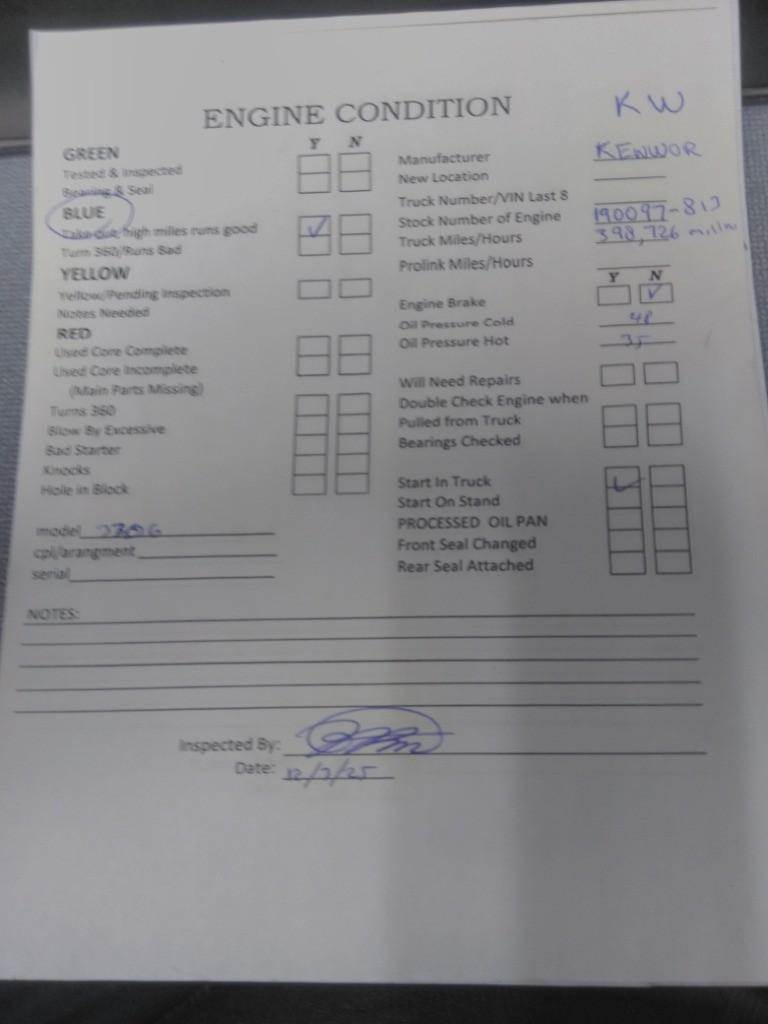 KW
ENGINE CONDITION
Y N
GREEN
Tested & Inspected
Bearing & Seal
BLUE
Take out, high miles runs good
Turn 360/Runs Bad
YELLOW
Yellow/Pending Inspection
Notes Needed
RED
Used Core Complete
Used Core Incomplete
(Main Parts Missing)
Turns 360
Blow By Excessive
Bad Starter
Knocks
Hole in Block
model
cpl/arangment
serial
Manufacturer KENWOR
New Location
Truck Number/VIN Last 8
Stock Number of Engine 190097-813
Truck Miles/Hours 398,726
Prolink Miles/Hours
Y N
Engine Brake
Oil Pressure Cold 48
Oil Pressure Hot 35
Will Need Repairs
Double Check Engine when
Pulled from Truck
Bearings Checked
Start In Truck
Start On Stand
PROCESSED OIL PAN
Front Seal Changed
Rear Seal Attached
NOTES:
Inspected By:
Date: 12/3/25